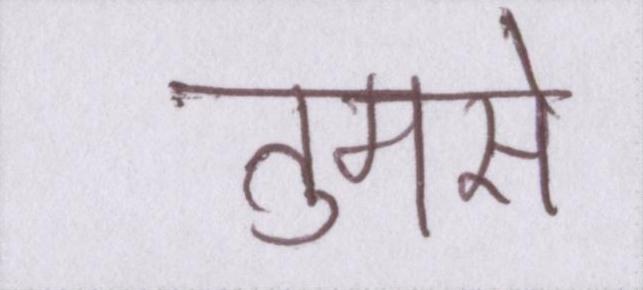 तुमसे